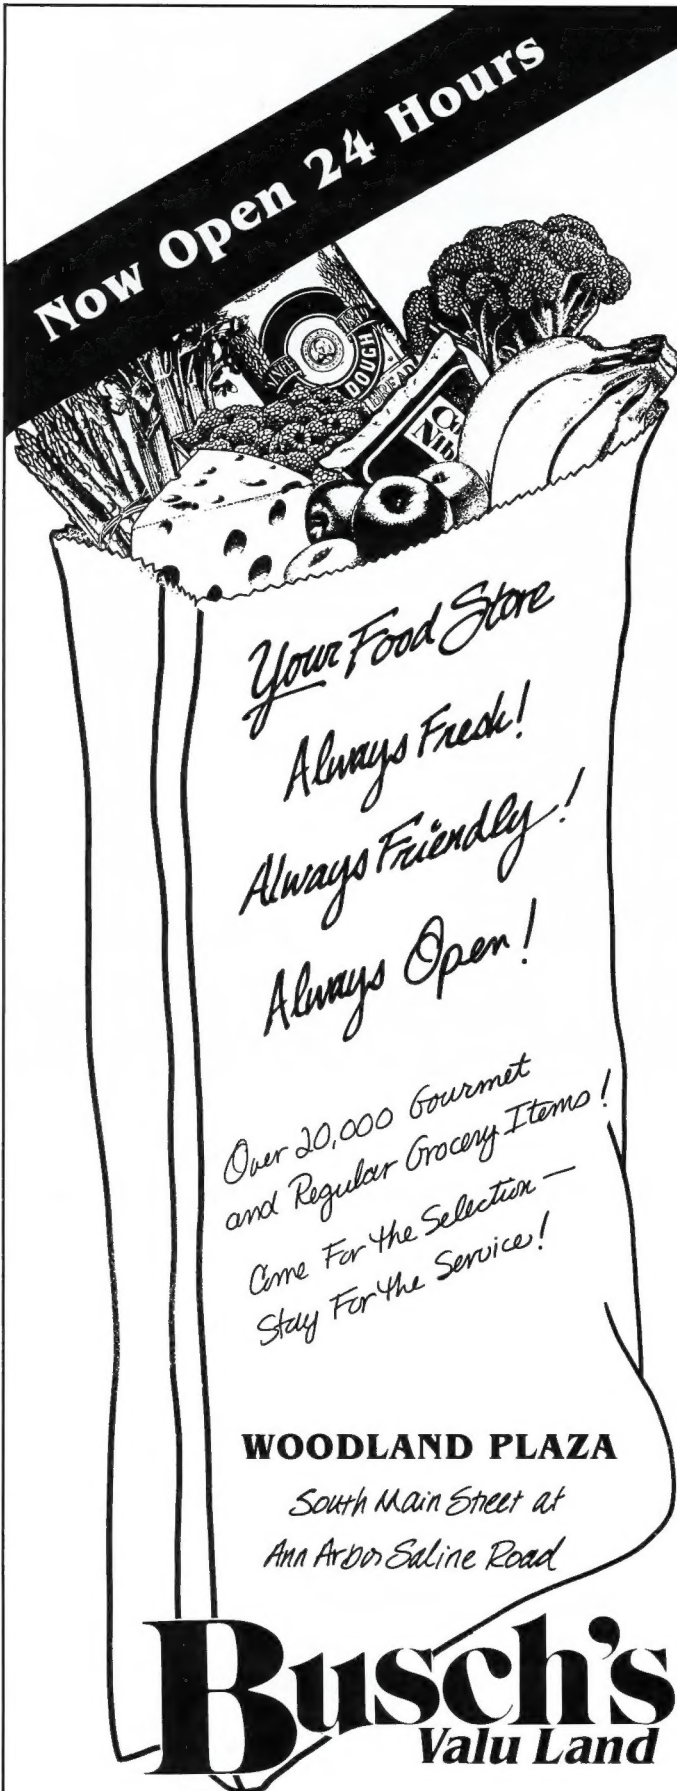 Now Open 24 Hours
DOUGH
Your Food Store
Always Fresh!
Always Friendly!
Always Open!
Over 20,000 Gourmet
and Regular Grocery Items!
Come For the Selection —
Stay For the Service!
WOODLAND PLAZA
South Main Street at
Ann Arbor Saline Road
Busch's
Valu Land